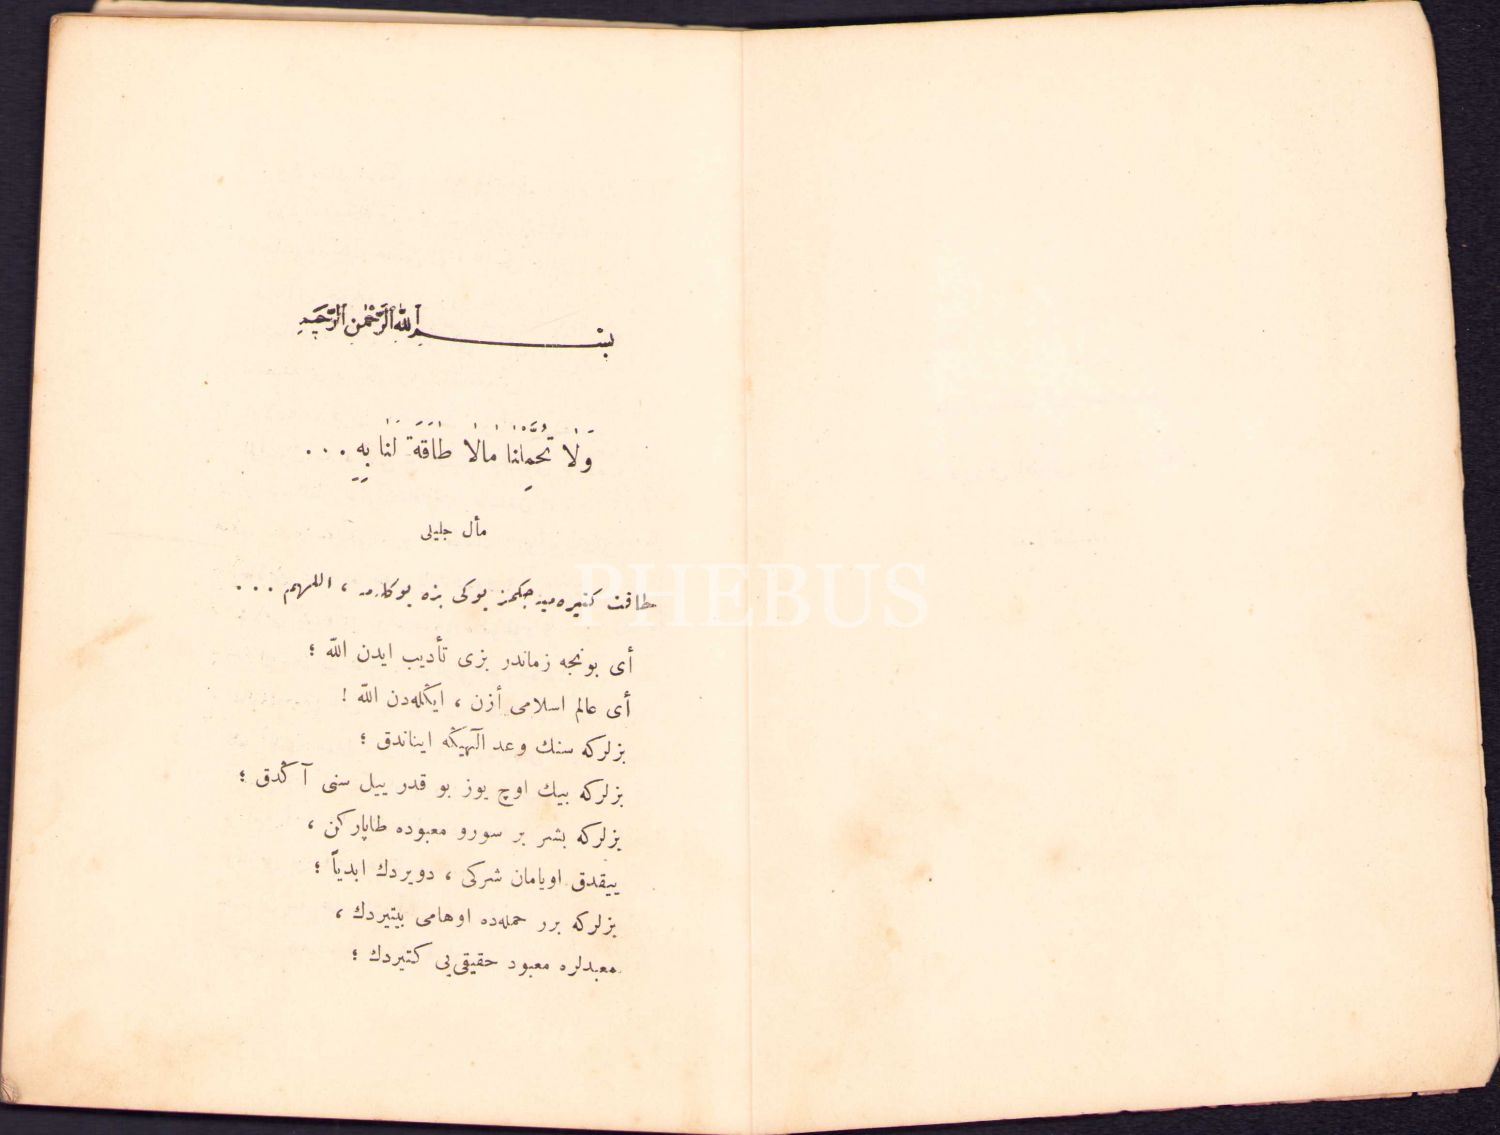 بِسْمِ ٱللّٰهِ ٱلرَّحْمٰنِ ٱلرَّحِيمِ
وَلَا تُحَمِّلْنَا مَالَا طَاقَةَ لَنَا بِهِ . . .
مأل جليلى
طاقت كتيره‌ميه‌جكمز يوكى بزه يوكلمه ، اللهم . . .
أى بونجه زماندر بزى تأديب ايدن اللّه ؛
أى عالم اسلامى أزن ، ايكله‌دن اللّه !
بزلركه سنك وعد الٓهيكه ايناندق ؛
بزلركه بيك اوچ يوز بو قدر ييل سنى آكدق ؛
بزلركه بشر بر سورو معبوده طاپاركن ،
ييقدق اويامان شركى ، دويردك ابدياً ؛
بزلركه برر حمله‌ده اوهامى بيتيردك ،
معبدلره معبود حقيقى‌يى كتيردك ؛
PHEBUS